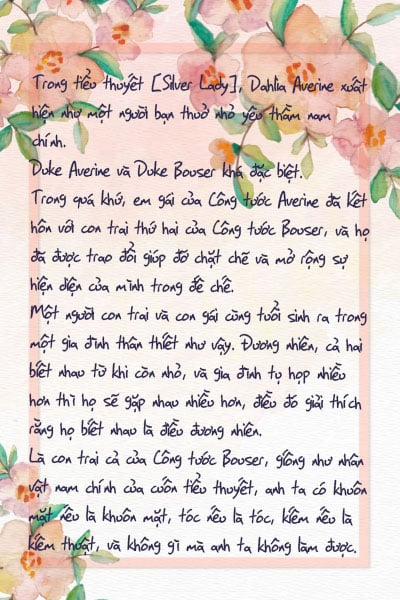 Trong tiểu thuyết [Silver Lady], Dahlia Averine xuất
hiện như một người bạn thuở nhỏ yêu thầm nam
chính.
Duke Averine và Duke Bouser khá đặc biệt.
Trong quá khứ, em gái của Công tước Averine đã kết
hôn với con trai thứ hai của Công tước Bouser, và họ
đã được trao đổi giúp đỡ chặt chẽ và mở rộng sự
hiện diện của mình trong đế chế.
Một người con trai và con gái cùng tuổi sinh ra trong
một gia đình thân thiết như vậy. Đương nhiên, cả hai
biết nhau từ khi còn nhỏ, và gia đình tụ họp nhiều
hơn thì họ sẽ gặp nhau nhiều hơn, điều đó giải thích
rằng họ biết nhau là điều đương nhiên.
Là con trai cả của Công tước Bouser, giống như nhân
vật nam chính của cuốn tiểu thuyết, anh ta có khuôn
mặt nếu là khuôn mặt, tóc nếu là tóc, kiếm nếu là
kiếm thuật, và không gì mà anh ta không làm được.